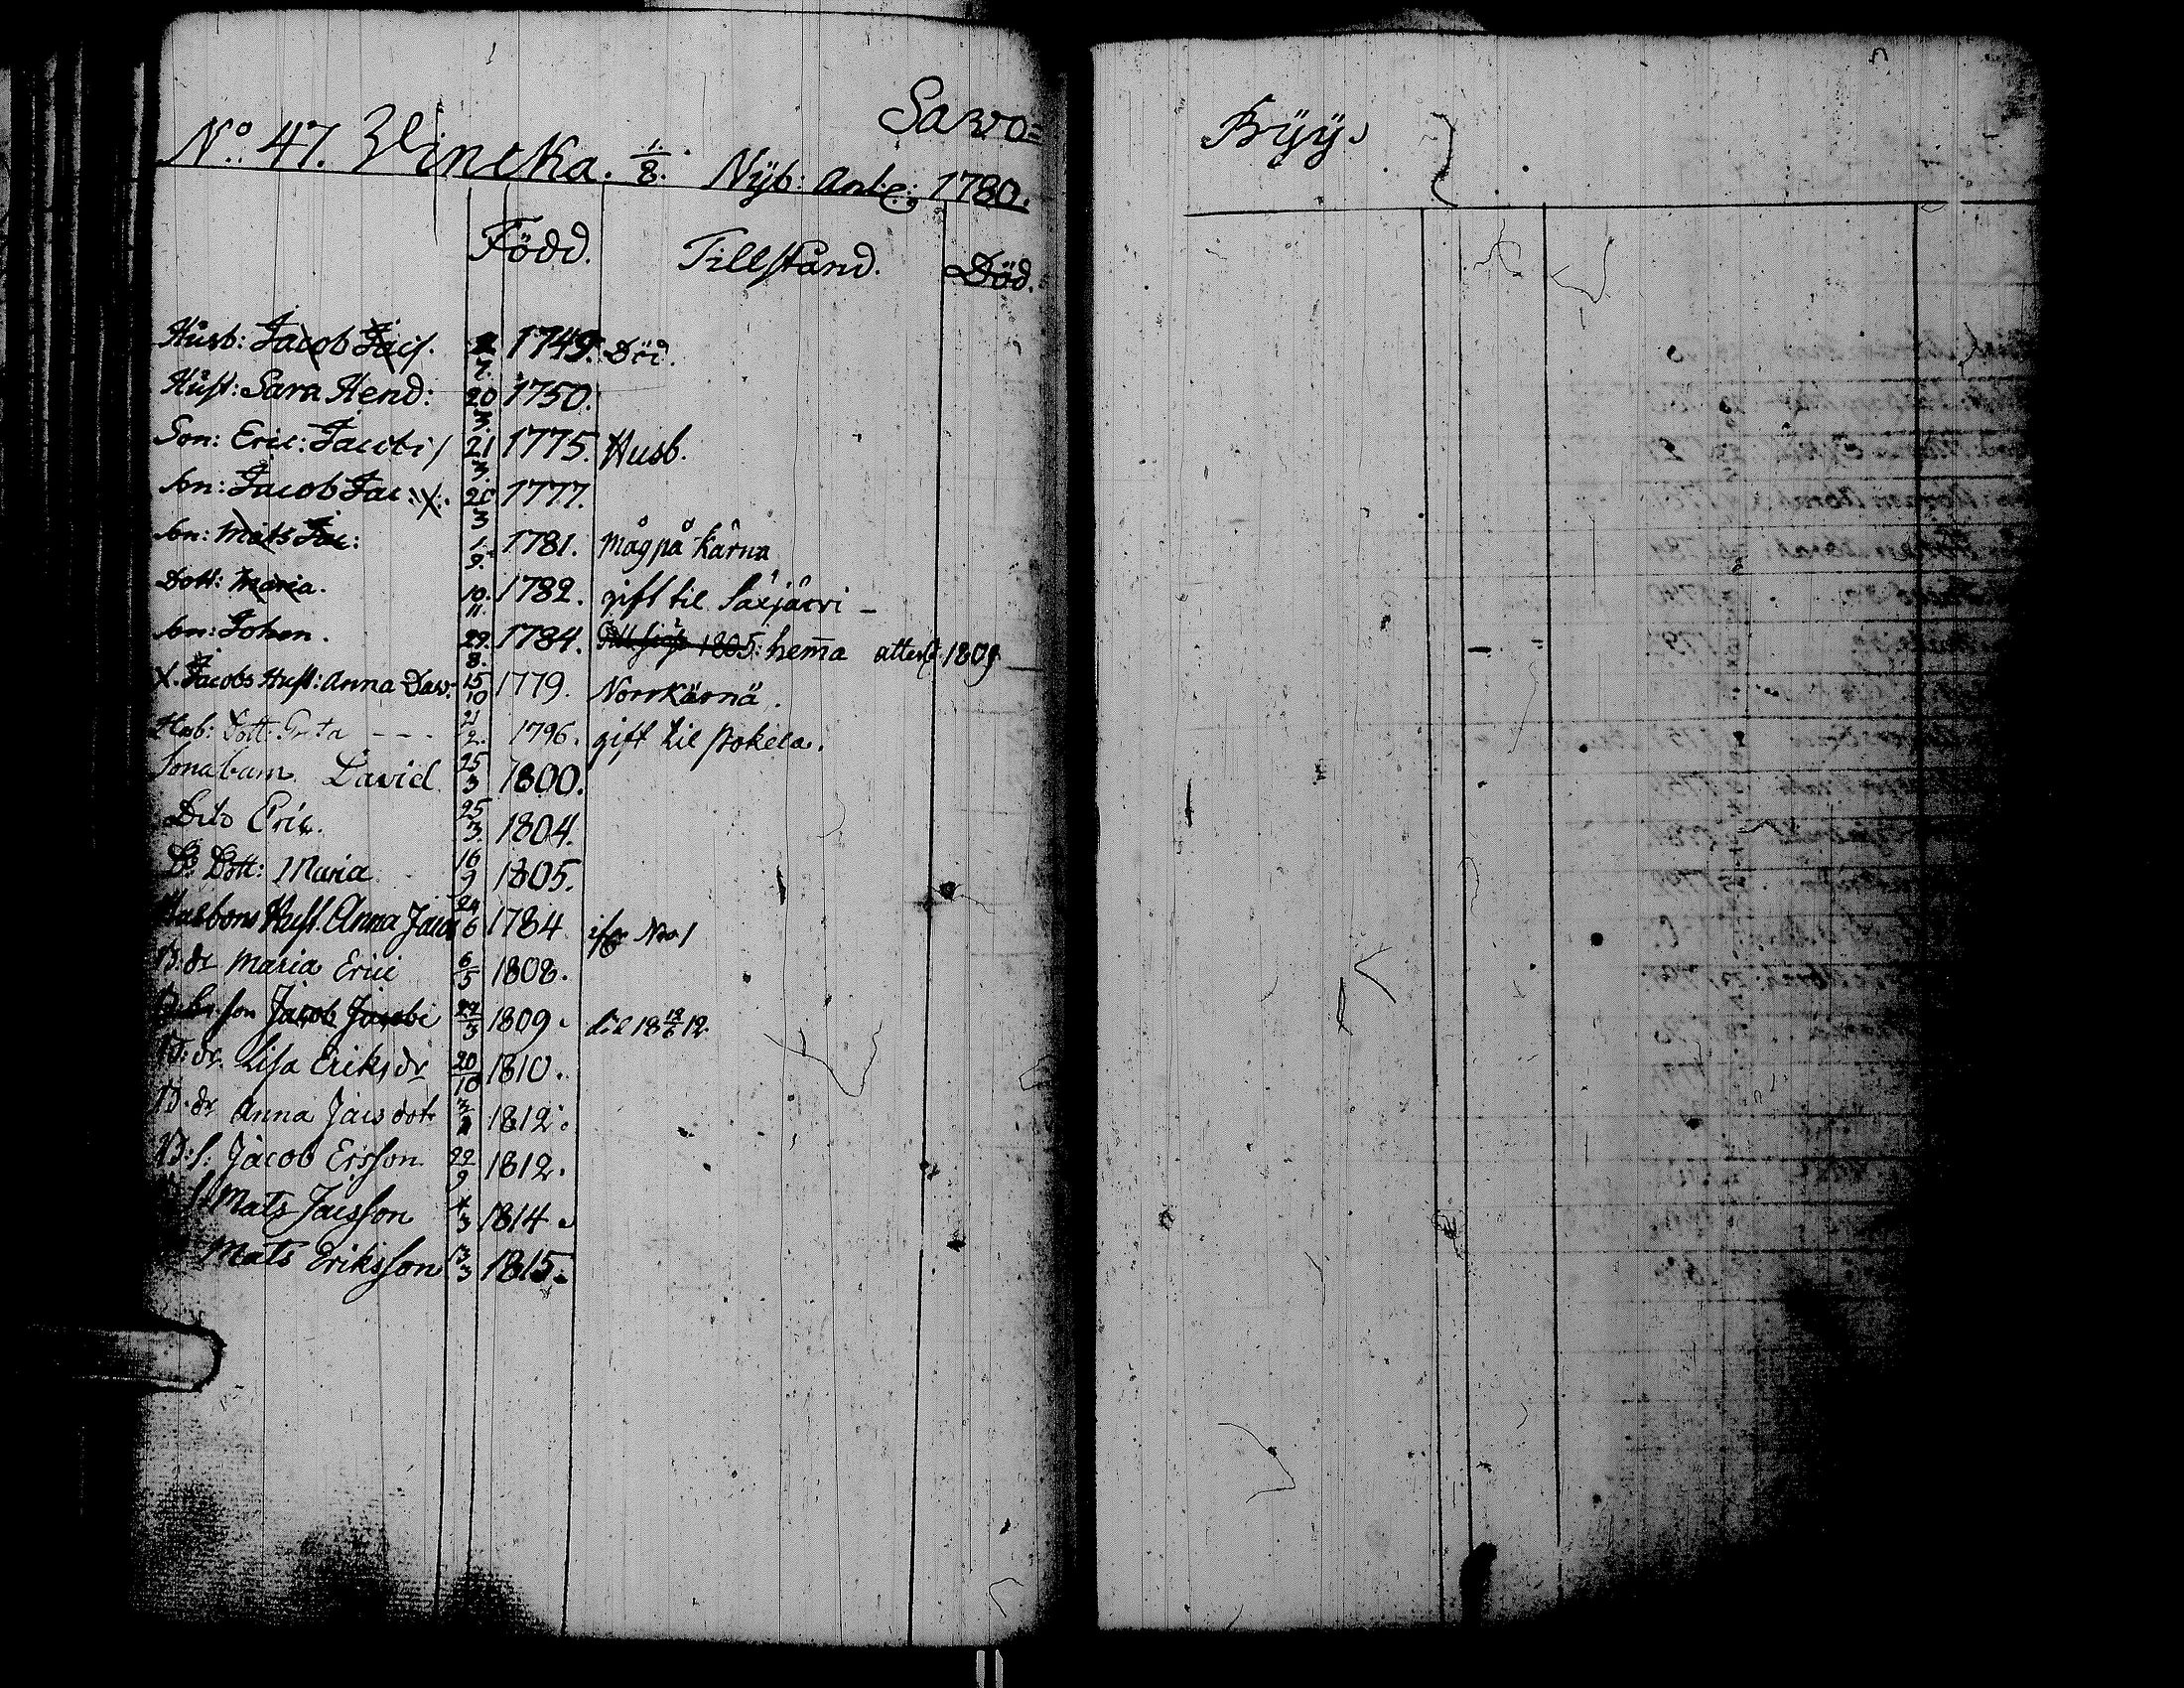 Sawo=
No: 47. Vincka. 1/8. Nÿb: Anl:g: 1780.
Född. Tillstånd. Död.
Husb: Jacob Jacs. 2/7. 1749. Död.
Hust: Sara Hend: 20/3. 1750.
Son: Eric: Jacobi/ 21/3. 1775. Husb.
Son: Jacob Jac: X. 20/3 1777.
Son: Mats Jac: 1/9. 1781. Måg på Kårna
Dott: Maria. 10/11. 1782. gift til Saxjäcri -
Son: Johan. 29./8. 1784. 1805: hem̄a 1809
X. Jacobs Hust: Anna Dav: 15/10 1779. Norrkärnä.
Hub: Dott: Greta - - - 21/2. 1796. gift til Pokela.
Sonabarn David 25/3 1800.
Dito Eric. 25/3. 1804.
Do Dott: Maria 16/9 1805.
Husbons Hust. Anna Jacob 24/6 1784 No 1
B: dr Maria Erici 6/5 1808.
son Jacob Jacobi 22/3 1809. död 18 12/6 12.
B: dr. Lisa Eriksdr 20/10 1810.
B. dr Anna Jacsdotr 3/2 1812:
B: s: Jacob Ersson 22/9 1812.
S: Mats Jacsson 4/3 1814
Mats Eriksson 13/3 1815.
Bÿÿs